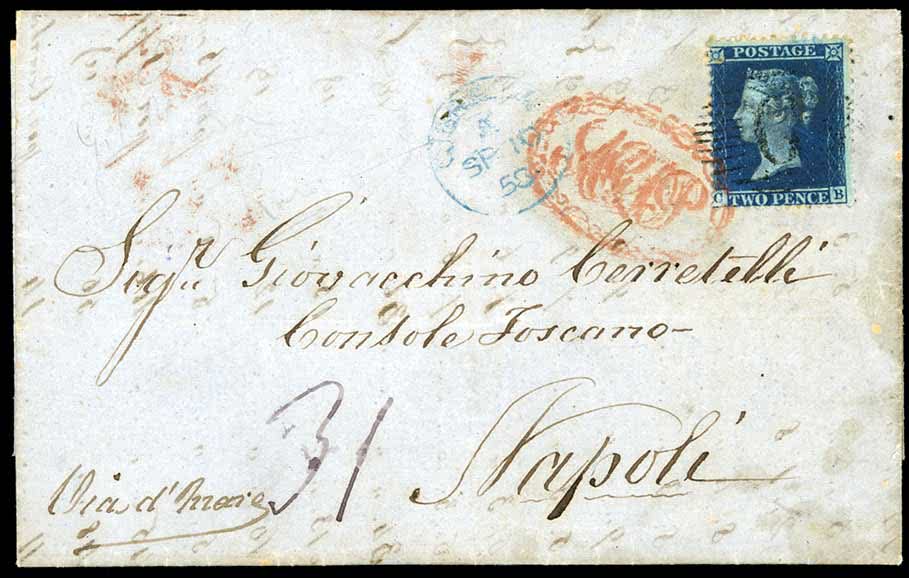 POSTAGE
TWO PENCE
C B
SP 10
Sigr. Giovacchino Cerretelli
Console Toscano
Napoli
Via d'mare
31